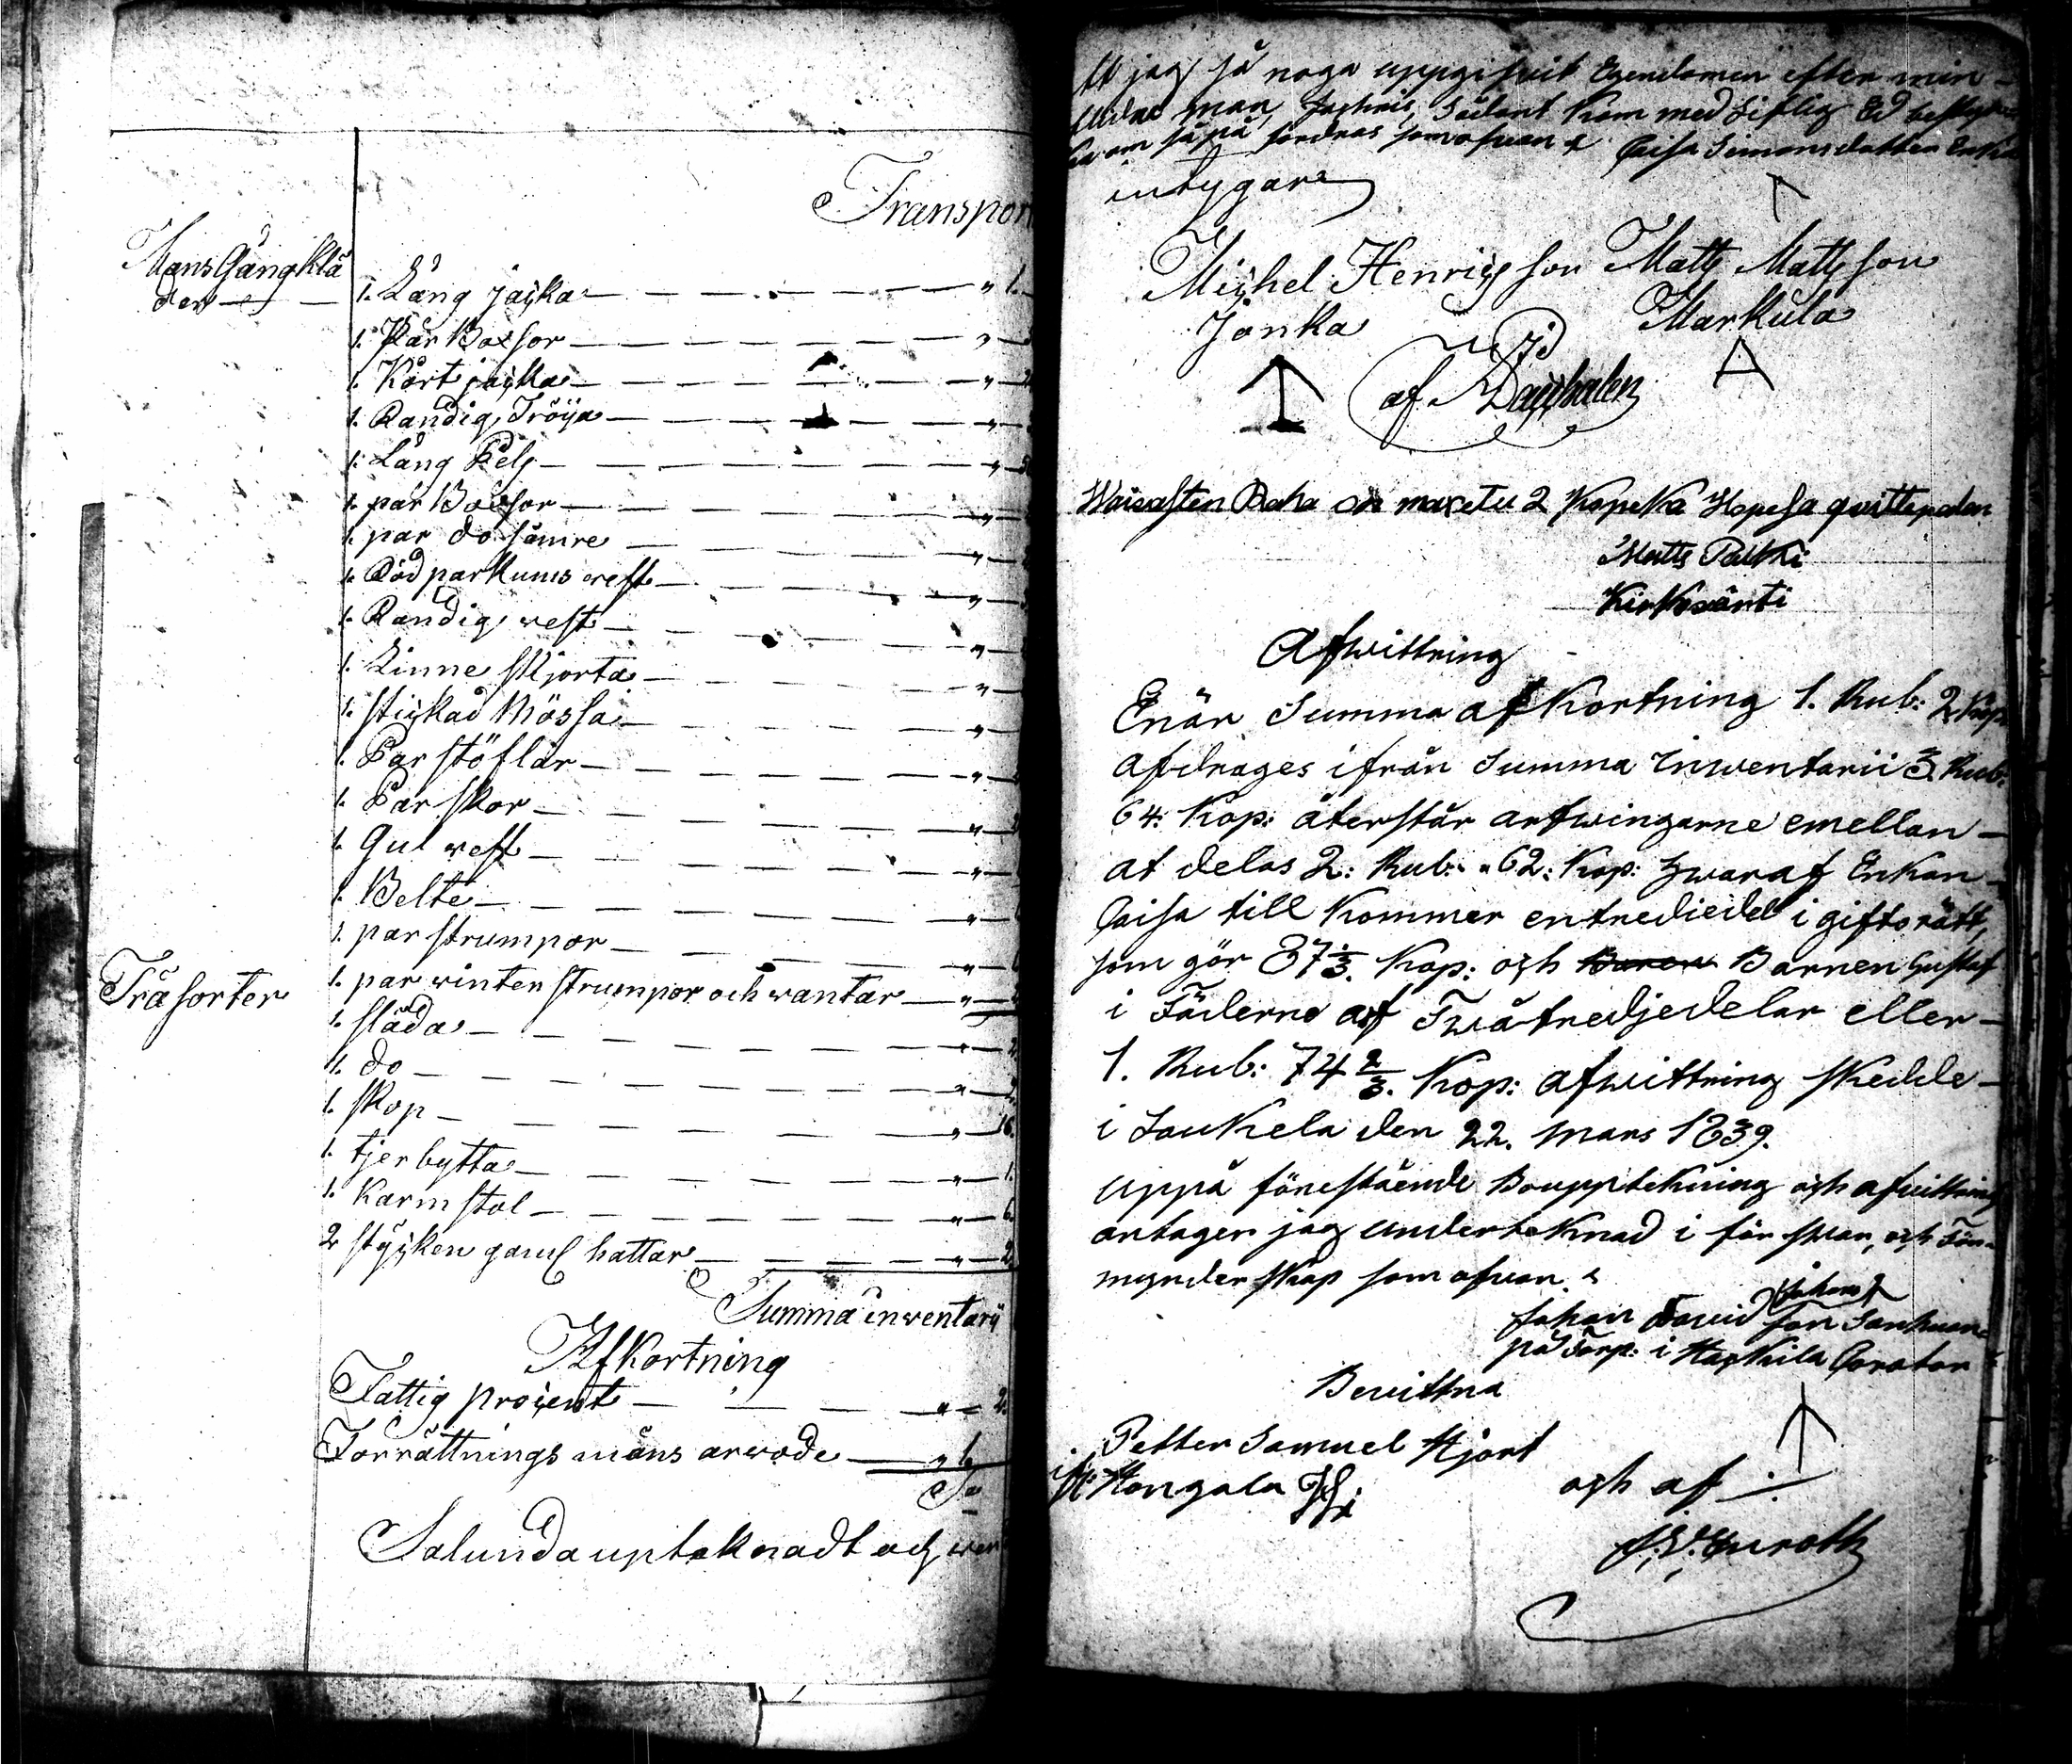 Transpor
Mans Gångklä
der
1. Lång jacka — " 1.
1. Par Boxsor — "
1. Kort jacka — " 2
1. Randig Tröya — "
1. Lång Pels — " 5
1. par Boxsor — "
1. par do sämre — "
1. Röd parkums west — "
1. Randig west — "
1. Linne skjorta — "
1. stickad Mössa — "
1. Par stöflar — "
1. Par skor — "
1. Gul west — "
1. Belte — "
1. par strumpor — "
1. par winter strumpor och wantar — "
Träsorter
1. släda — " 2
1. do — "
1. skop — " 16.
1. tjerbytta — " 1.
1. Karmstol — " 6.
2 stycken gaml hattar — " 2
Summa inwentarii
Afkortning
Fattig procent — " 2.
Förrättnings mäns arwode — " 1
Sa
Salunda uptaknadt och wer
At jag så noga uppgifvit Egendomen efter min
man, Sådant kan med Liflig Ed
om så på fordras som ofvan Caisa Simonsdotter Enka
intygar
Michel Henricsson Matts Mattsson
Jönka Markula
af
Waiwasten Raha on maxetu 2 Kopeka Hopesa quittepatan
Matts Palkki
Kirkwänti
Afwittring
Enär Summa afkortning 1. Rub: 2 Kop:
afdrages ifrån Summa Inwentarii 3. Rub:
64: Kop: återstår arfwingarne emellan —
at delas 2: Rub: 62: Kop: hwaraf Enkan
Caisa till kommer entrediedel i giftorätt,
som gör 87 1/3. Kop: och Barnen Gustaf
i Fäderne arf Twåtredjedelar eller —
1. Rub: 74 2/3. Kop: afwittring skedde —
i Soukela den 22. Mars 1839.
Uppå förestående Boupptekning och afwittring
antager jag undertecknad i försvar, och För-
mynderskap som ofvan
Johan David Johans
son Sanhuan
på Torp: i Haskila Curator
Bewittna
Petter Samuel Hjort
ifr: Hongala
och af